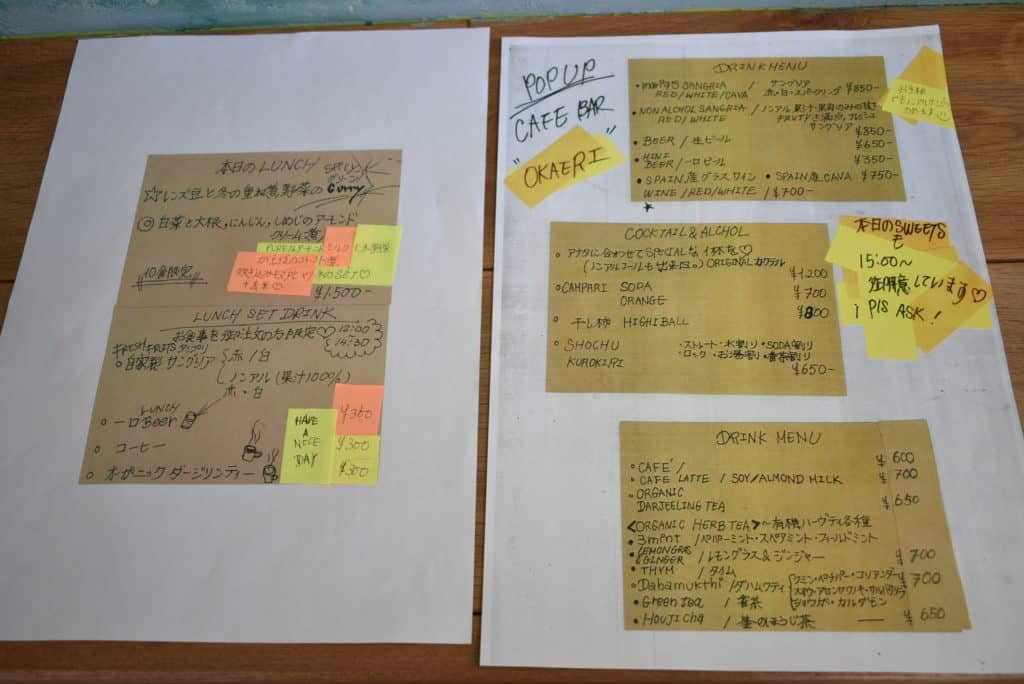 本日のLUNCH
☆レンズ豆と冬の重ね煮野菜のCurry
◎白菜と大根,にんじん,しめじのアーモンド
クリーム煮
10食限定
SET♡
¥1.500-
LUNCH SET DRINK
お食事を御注文の方限定♡ 12:00
14:30
FRESH FRUITS
◦自家製 サングリア 赤/白
ノンアル(果汁100%)
赤・白
LUNCH
◦一口Beer
¥300
◦コーヒー
¥300
◦オーガニックダージリンティー
¥300
HAVE
A
NICE
DAY
POPUP
CAFE BAR
"OKAERI"
DRINK MENU
SANGRIA / サングリア
RED/WHITE/CAVA 赤・白・スパークリング ¥850-
•NONALCHOL SANGRIA / ノンアル
RED/WHITE
サングリア
¥850-
•BEER / 生ビール ¥650-
•MINI
BEER/一口ビール ¥350-
•SPAIN産グラスワイン •SPAIN産CAVA ¥750-
WINE/RED/WHITE / ¥700-
COCKTAIL&ALCHOL
◦アナタに合わせてSPECIALな1杯を♡
(ノンアルコールも出来ます。) ORIGINALカクテル ¥1.200
◦CAMPARI SODA ¥700
ORANGE ¥800
◦干し柿 HIGHBALL
◦SHOCHU ・ストレート・水割り・SODA割り
KUROKIRI ・ロック・お湯割・番茶割り
¥650-
本日のSWEETS
も
15:00〜
御用意しています♡
PLS ASK!
DRINK MENU
◦CAFE'/ ¥600
◦CAFE LATTE / SOY/ALMOND MILK ¥700
◦ORGANIC
DARJEELING TEA ¥650
<ORGANIC HERB TEA>〜有機ハーヴティ各種
•3mint /ペパーミント・スペアミント・フィールドミント
•LEMONGRAS
&GINGER /レモングラス&ジンジャー ¥700
•THYM /タイム
•Dahamukthi/ダハムクティ クミン・ペッパー・コリアンダー ¥700
ショウガ・カルダモン
•Green tea / 番茶
•Houjicha / 茎のほうじ茶 — ¥650